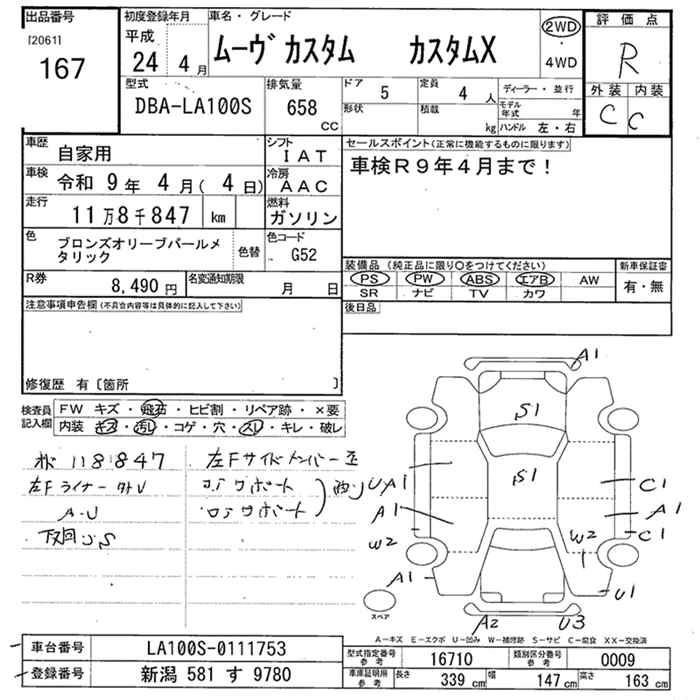 出品番号
[2061]
167
初度登録年月
平成
24 4月
車名・グレード
ムーヴ カスタム カスタムX
2WD
・
4WD
評価点
R
外装 内装
C C
型式
DBA-LA100S
排気量
658
CC
ドア
5
形状
定員
4人
積載
kg
ディーラー・並行
モデル年式 年
ハンドル 左・右
車歴
自家用
シフト
IAT
車検
令和 9年 4月(4日)
冷房
AAC
走行
11万8千847 km
燃料
ガソリン
色
ブロンズオリーブパールメタリック
色替
色コード
G52
R券
8,490円
名変通知期限
月 日
セールスポイント(正常に機能するものに限ります)
車検R9年4月まで!
装備品(純正品に限り○をつけてください)
PS PW ABS エアB AW
SR ナビ TV カワ
新車保証書
有・無
後日品
注意事項申告欄(不具合内容等は具体的に記入して下さい)
修復歴 有〔箇所 〕
検査員記入欄
FW キズ・飛石・ヒビ割・リペア跡・×要
内装 キズ・汚レ・コゲ・穴・スレ・キレ・破レ
118847
左Fサイドメンバー
左Fライナー
コアサポート
A-U
下回りS
A1
S1
S1
UA1
A1
W2
A1
C1
A1
C1
W2
U1
A2
U3
スペア
A-キズ E-エクボ U-凹み W-補修跡 S-サビ C-腐食 XX-交換済
車台番号
LA100S-0111753
登録番号
新潟 581 す 9780
型式指定番号
参考
16710
類別区分番号
参考
0009
車庫証明用
参考
長さ
339 cm
幅
147 cm
高さ
163 cm